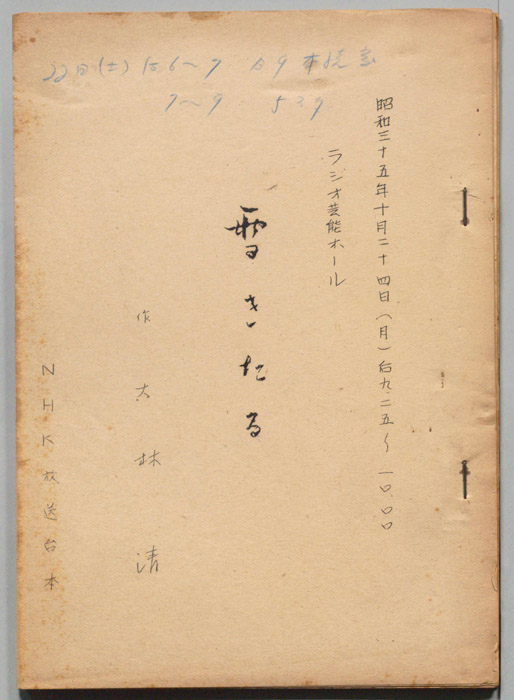 22日(土) 后6〜7
7〜9 529
昭和三十五年十月二十四日(月)后九.二五〜一〇.〇〇
ラジオ芸能ホール
雪きたる
作 大林 清
NHK放送台本